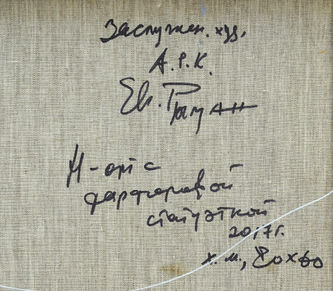 Заслужен. худ.
А.Р.К.
Ев. Рыман
Н-рт с
фарфоровой
статуэткой
2017г.
х.м., 80х60